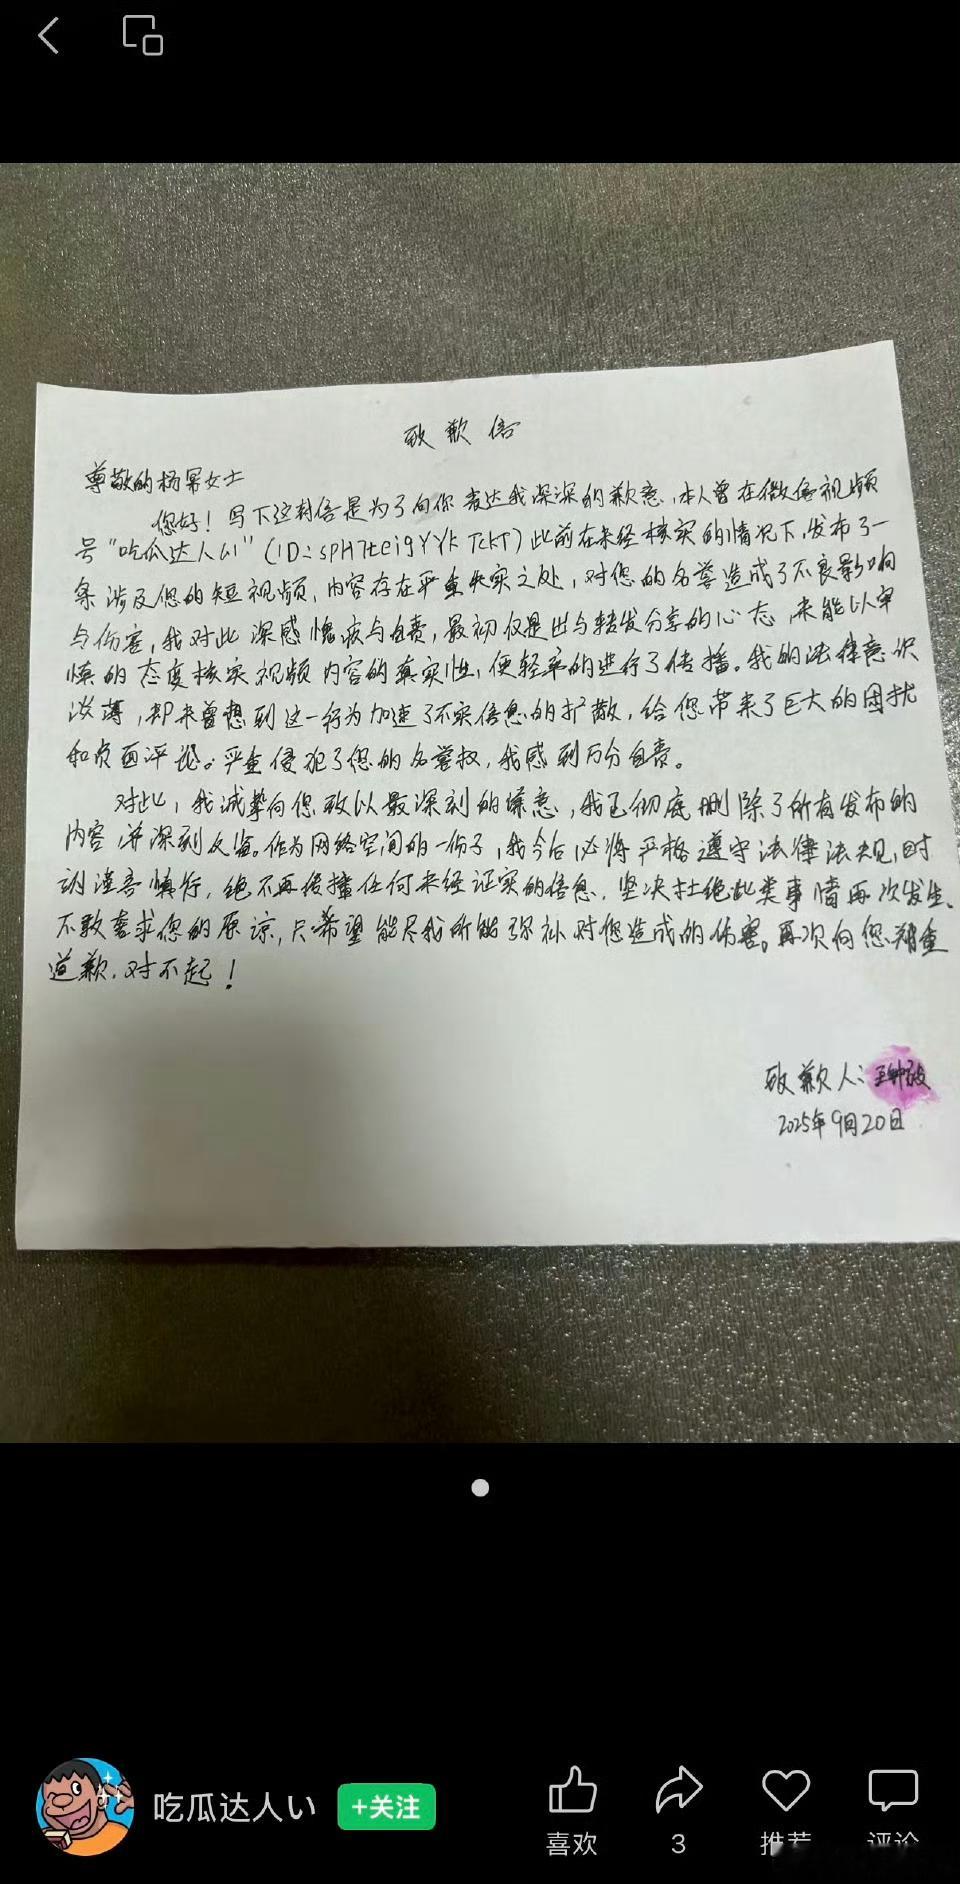 致歉信
尊敬的杨幂女士
您好！写下这封信是为了向你表达我深深的歉意，本人曾在微信视频
号“吃瓜达人い”（ID：spH7tei9YYkTckT）此前在未经核实的情况下，发布了一
条涉及您的短视频，内容存在严重失实之处，对您的名誉造成了不良影响
与伤害，我对此深感愧疚与自责，最初仅是出与转发分享的心态，未能以审
慎的态度核实视频内容的真实性，便轻率的进行了传播。我的法律意识
淡薄，却未曾想到这一行为加速了不实信息的扩散，给您带来了巨大的困扰
和负面评论。严重侵犯了您的名誉权，我感到万分自责。
对此，我诚挚向您致以最深刻的歉意，我已彻底删除了所有发布的
内容，并深刻反省。作为网络空间的一份子，我今后必将严格遵守法律法规，时
刻谨言慎行，绝不再传播任何未经证实的信息，坚决杜绝此类事情再次发生、
不敢奢求您的原谅，只希望能尽我所能弥补对您造成的伤害。再次向您郑重
道歉，对不起！
致歉人：
2025年9月20日
吃瓜达人い
+关注
喜欢
3
推荐
评论